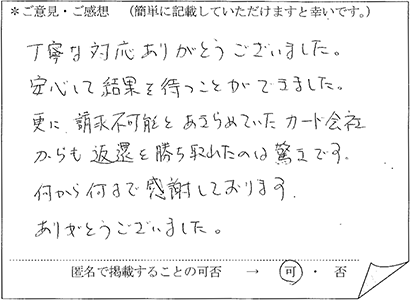 ＊ご意見・ご感想　（簡単に記載していただけますと幸いです。）
丁寧な対応ありがとうございました。
安心して結果を待つことができました。
更に、請求不可能とあきらめていたカード会社
からも返還を勝ち取れたのは驚きです。
何から何まで感謝しております。
ありがとうございました。
匿名で掲載することの可否　→　可・否